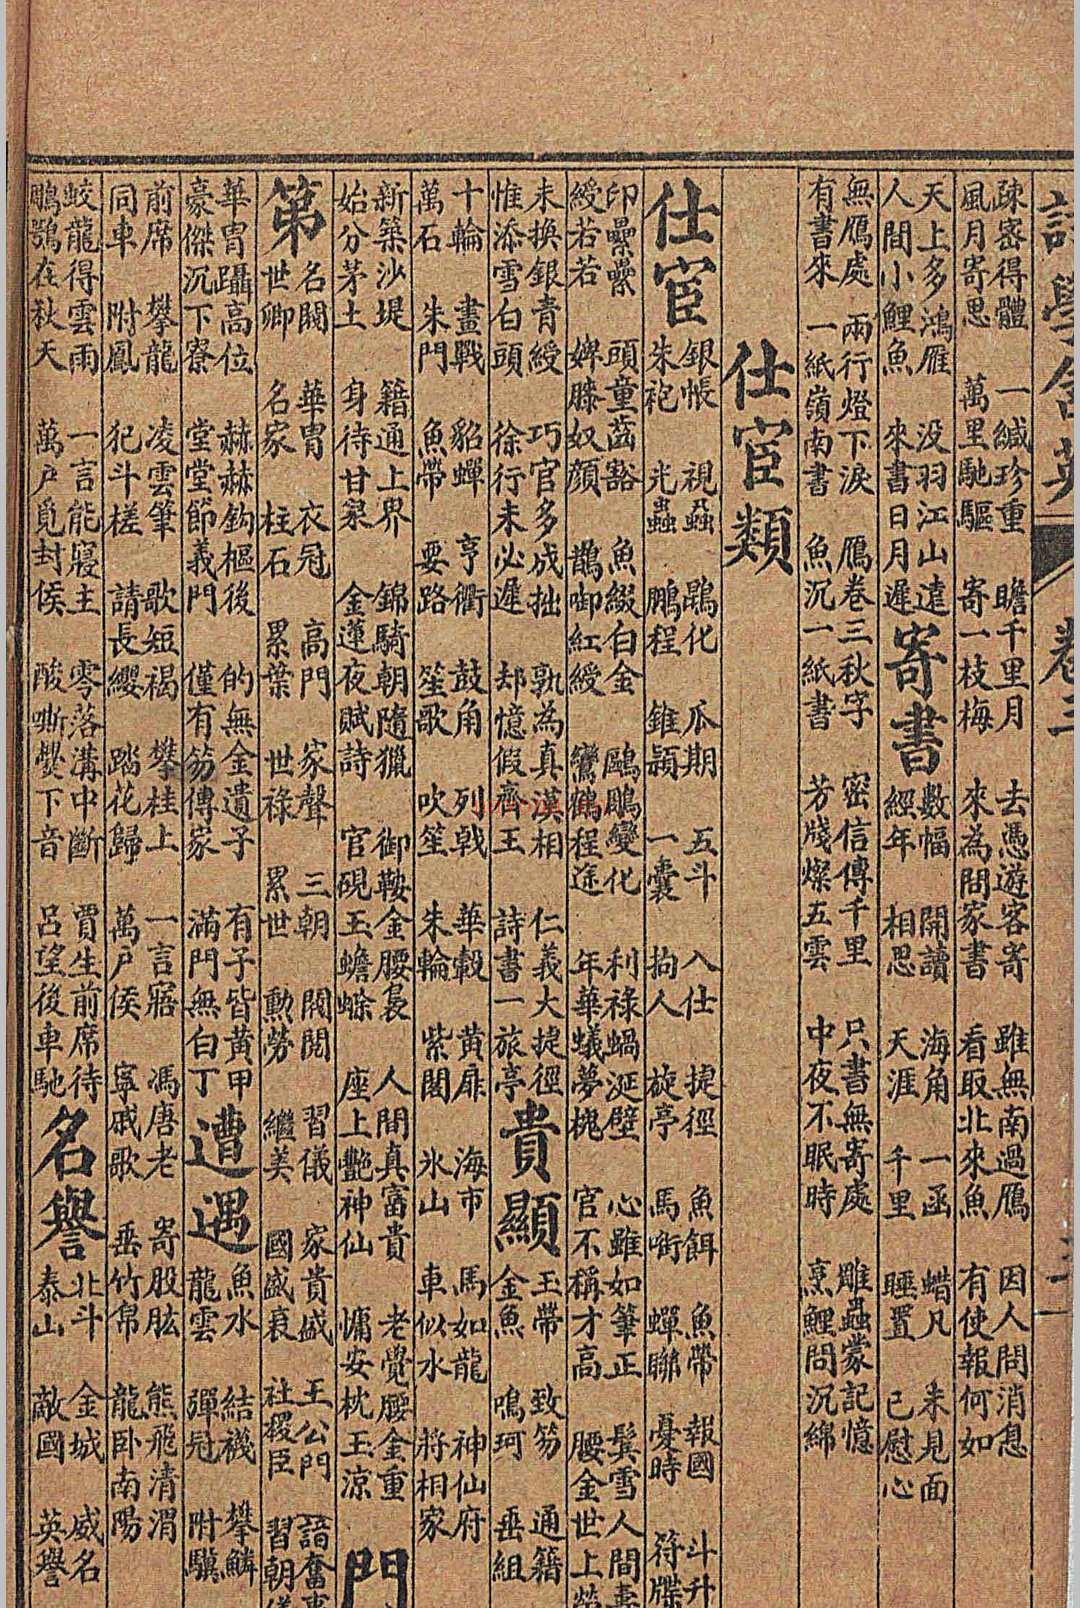 詩學含英 卷三
疎密得體 一緘珍重 瞻千里月 去憑遊客寄 雖無南過鴈 因人問消息
風月寄思 萬里馳驅 寄一枝梅 來為問家書 看取北來魚 有使報何如
天上多鴻雁 没羽江山遠 寄書 數幅 開讀 海角 一函 蜡凡 未見面
人間小鯉魚 來書日月遲 經年 相思 天涯 千里 睡置 已慰心
無鴈處 兩行燈下淚 鴈卷三秋字 密信傳千里 只書無寄處 雕蟲蒙記憶
有書來 一紙嶺南書 魚沉一紙書 芳牋燦五雲 中夜不眠時 烹鯉問沉綿
仕宦類
仕宦 銀帳 視蝨 鵾化 瓜期 五斗 入仕 捷徑 魚餌 魚帶 報國 斗升
朱袍 光蟲 鵬程 錐穎 一囊 拘人 旋亭 馬衔 蟬聯 憂時 符牒
印纍纍 頭童齒豁 魚綴白金 鷗鵰變化 利祿蝸涎壁 心雖如筆正 鬓雪人間
綬若若 婢膝奴顔 鵲啣紅綬 鸞鶴程途 年華蟻夢槐 官不稱才高 腰金世上
未换銀青綬 巧官多成拙 孰為真漢相 仁義大捷徑 貴顯 玉帶 致笏 通籍
惟添雪白頭 徐行未必遲 却憶假齊王 詩書一旅亭 金魚 鳴珂 垂組
十輪 畫戟 貂蟬 亨衢 鼓角 列戟 華轂 黄扉 海市 馬如龍 神仙府
萬石 朱門 魚帶 要路 笙歌 吹笙 朱輪 紫閣 氷山 車似水 將相家
新築沙堤 籍通上界 錦騎朝隨獵 御鞍金腰裊 人間真富貴 老覺腰金重
始分茅土 身待甘泉 金蓮夜賦詩 官硯玉蟾蜍 座上艷神仙 慵安枕玉凉 門
第 名閥 華冑 衣冠 高門 家聲 三朝 閥閲 習儀 家貴盛 王公門
世卿 名家 柱石 累葉 世祿 累世 勳勞 繼美 國盛衰 社稷臣 習朝
華冑躡高位 赫赫鈎樞後 的無金遺子 有子皆黄甲 遭遇 魚水 結襪 攀鱗
豪傑沉下寮 堂堂節義門 僅有笏傳家 滿門無白丁 龍雲 彈冠 附驥
前席 攀龍 凌雲筆 歌短褐 攀桂上 一言寤 馮唐老 寄股肱 熊飛清渭
同車 附鳳 犯斗槎 請長纓 踏花歸 萬戸侯 寧戚歌 垂竹帛 龍卧南陽
蛟龍得雲雨 一言能寢主 零落溝中斷 賈生前席待 名譽 北斗 金城 威名
鵰鶚在秋天 萬戸覓封侯 酸嘶爨下音 呂望後車馳 泰山 敵國 英譽